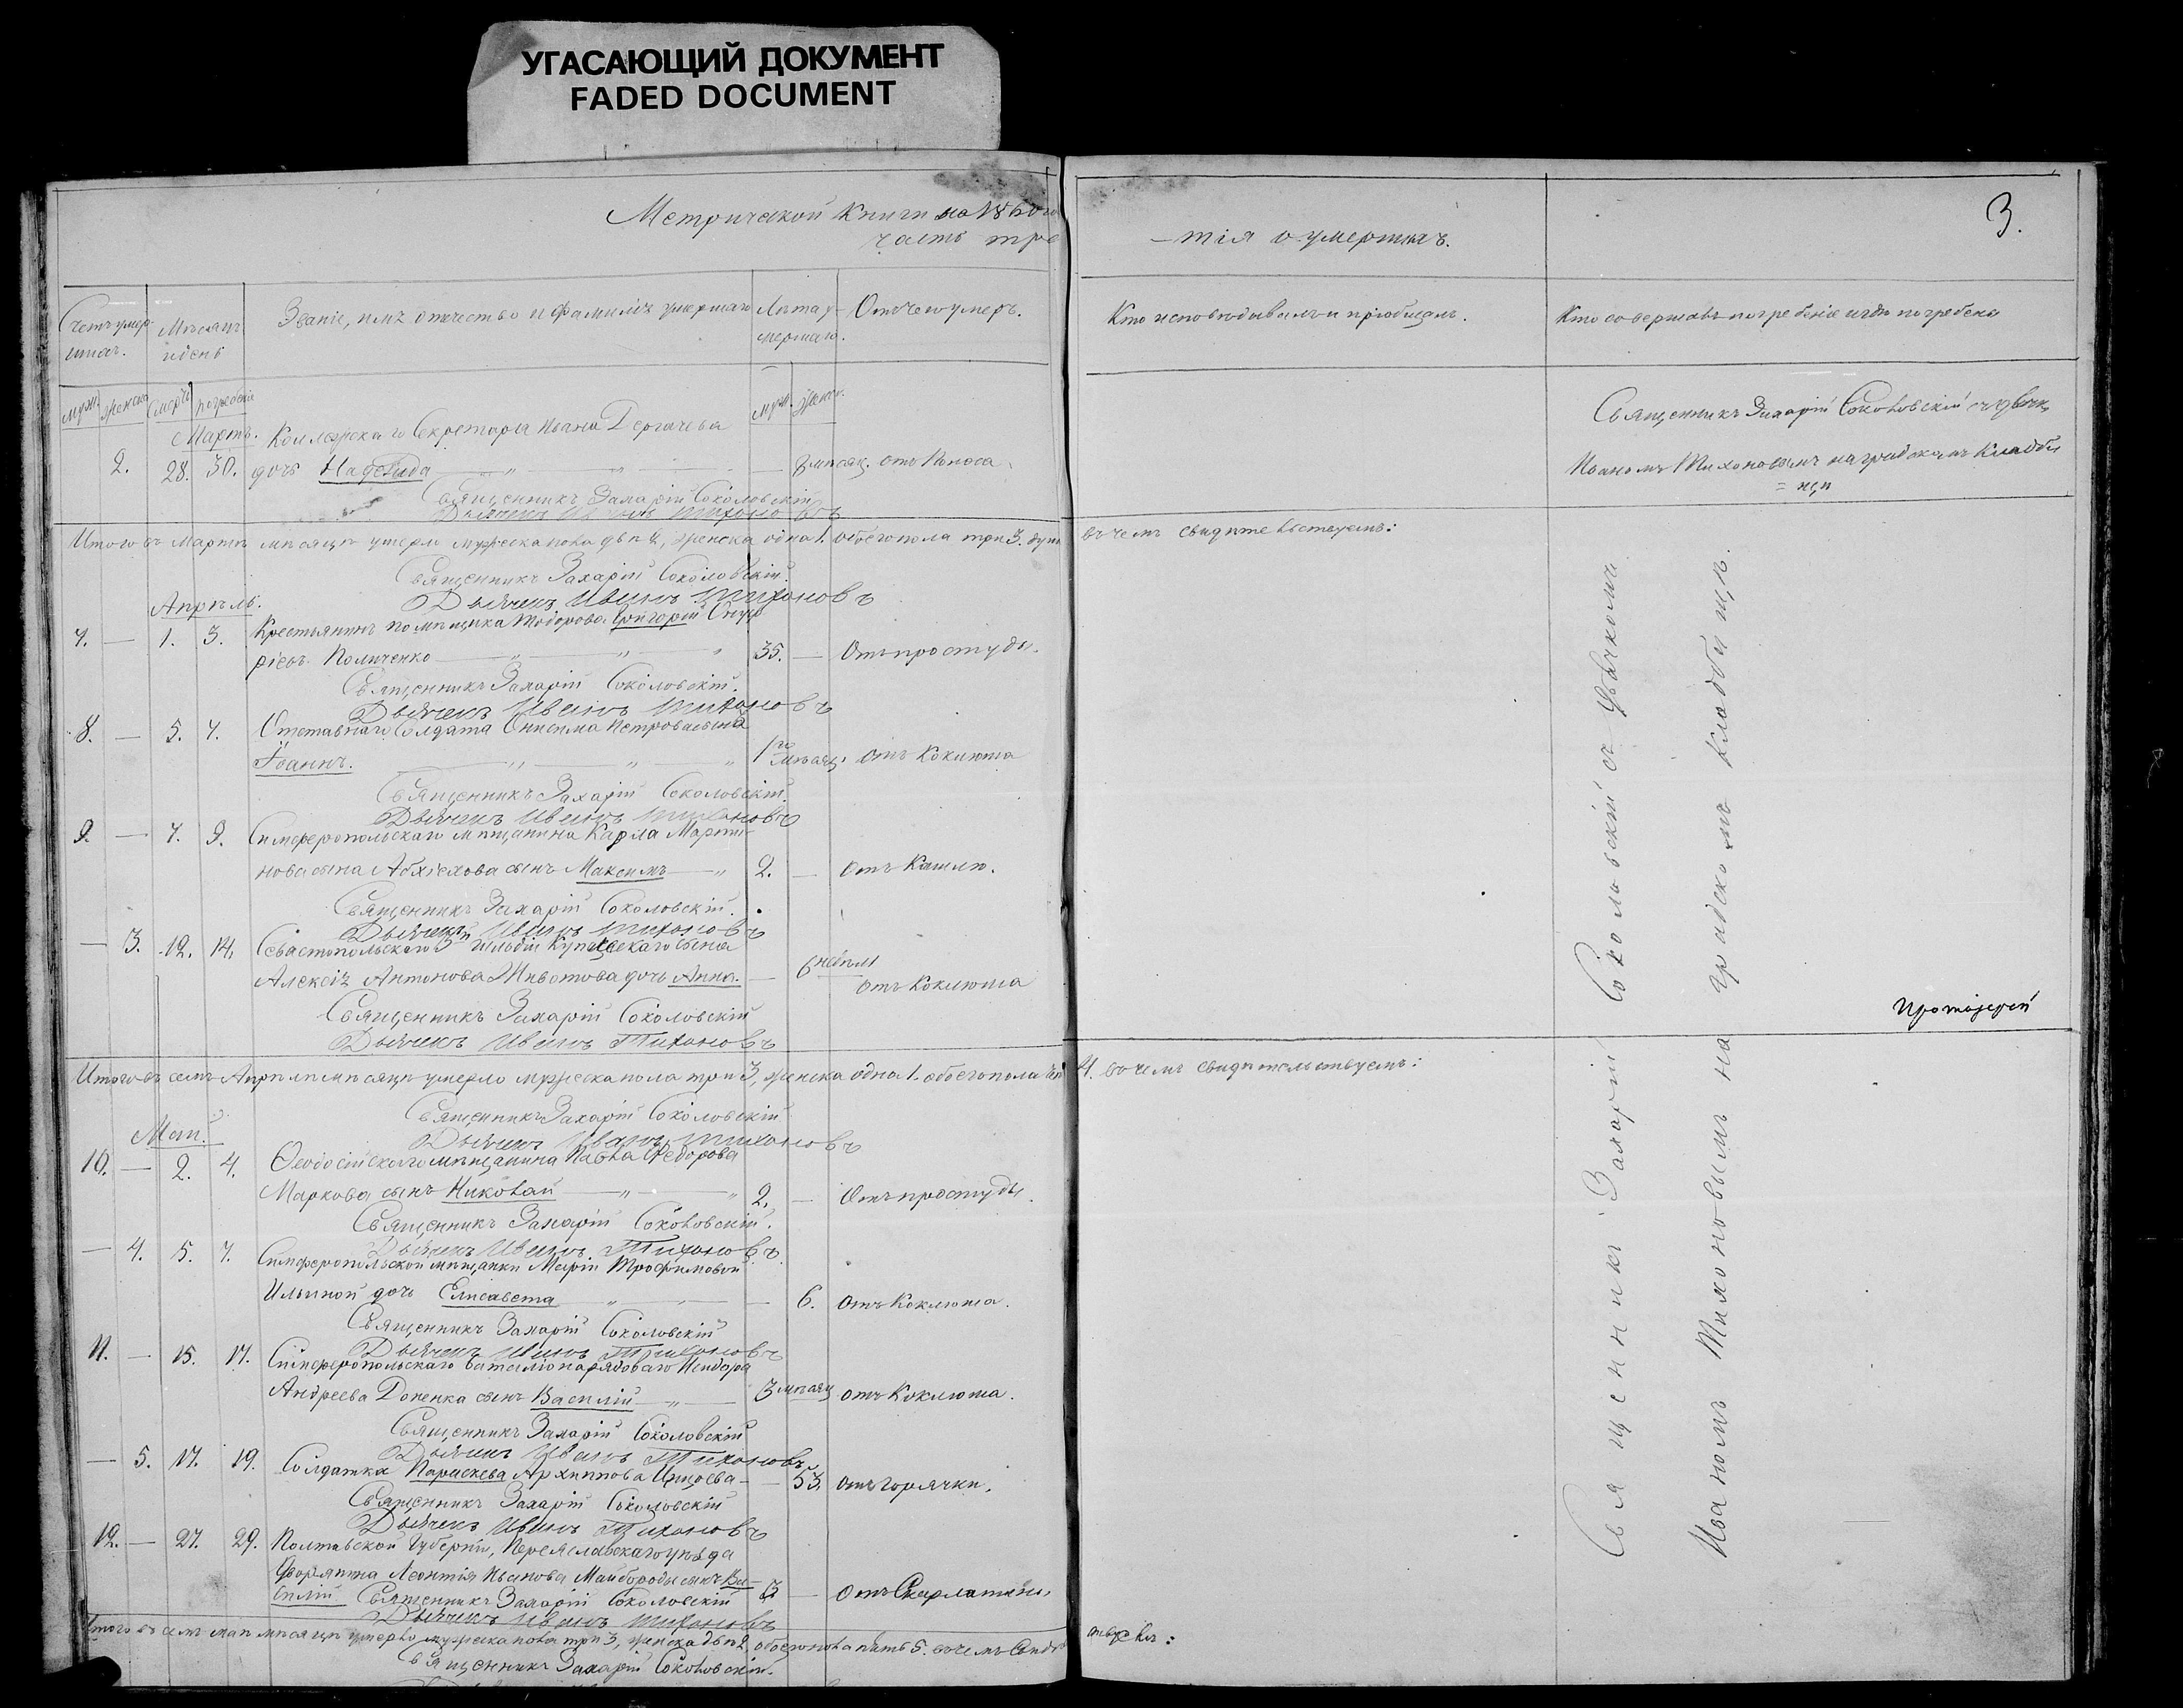 УГАСАЮЩИЙ ДОКУМЕНТ
FADED DOCUMENT
Метрической книги на 1860
часть тре
-тія о умершихъ.
3.
Счетъ умер-
шихъ.
Мѣсяцъ
и день
Званіе, имя отчество и фамилія умершаго
Лѣта у-
мершаго.
Отъ чего умеръ.
Кто исповѣдывалъ и пріобщалъ.
Кто совершалъ погребеніе и гдѣ погребены
муж. женска смерт. погребенія
муж. женск.
Мартъ.
Коллежскаго Секретаря Ивана Дергачева
2. 28. 30. дочь Надежда мѣсяц. отъ Поноса.
Священникъ Захарій Соколовскій
Дьячекъ Иванъ Тихоновъ
Священникъ Захарій Соколовскій съ дьячк.
Иваномъ Тихоновымъ на градскомъ Кладби
= щѣ
Итого въ Мартѣ мѣсяцѣ умерло мужеска пола двѣ 2, женска одна 1. обоего пола три 3. душ
въ чемъ свидѣтельствуемъ:
Священникъ Захарій Соколовскій.
Дьячекъ Иванъ Тихоновъ
Апрѣль.
7. — 1. 3. Крестьянинъ помѣщика Тодорова Григорій Онуф
ріевъ Поличенко 35. — Отъ простуды.
Священникъ Захарій Соколовскій.
Дьячекъ Иванъ Тихоновъ
8. — 5. 7. Отставнаго Солдата Онисима Петрова сынъ
Іоаннъ. 1 мѣсяц. отъ Коклюша
Священникъ Захарій Соколовскій.
Дьячекъ Иванъ Тихоновъ
9. — 7. 9. Симферопольскаго мѣщанина Карла Марти-
нова сына сынъ Максимъ 2. — отъ Кашлю.
Священникъ Захарій Соколовскій.
Дьячекъ Иванъ Тихоновъ
— 3. 12. 14. Севастопольскаго 3й гильдіи Купеческаго сына
Алексія Антонова Животова дочь Анна. — 6 недѣль
отъ Коклюша
Священникъ Захарій Соколовскій
Дьячекъ Иванъ Тихоновъ
Итого въ семъ Апрѣлѣ мѣсяцѣ умерло мужеска пола три 3, женска одна 1. обоего пола
4. въ чемъ свидѣтельствуемъ:
Священникъ Захарій Соколовскій
Дьячекъ Иванъ Тихоновъ
Май.
10. — 2. 4. Ѳеодосійскаго мѣщанина Павла Федорова
Маркова сынъ Николай 2. — Отъ простуды.
Священникъ Захарій Соколовскій.
Дьячекъ Иванъ Тихоновъ
— 4. 5. 7. Симферопольской мѣщанки Маріи Трофимовой
Ильиной дочь Елисавета — 6. отъ Коклюша.
Священникъ Захарій Соколовскій
Дьячекъ Иванъ Тихоновъ
11. — 15. 17. Симферопольскаго баталіона рядоваго Исидора
Андреева Доненка сынъ Василій 3 мѣсяц отъ Коклюша.
Священникъ Захарій Соколовскій
Дьячекъ Иванъ Тихоновъ
— 5. 17. 19. Солдатка Параскева Архиппова — 53. отъ горячки.
Священникъ Захарій Соколовскій
Дьячекъ Иванъ Тихоновъ
12. — 27. 29. Полтавской Губерніи, Переяславскаго уѣзда
Леонтія Иванова Майбороды сынъ Ва-
силій 3 — отъ Скарлатины.
Священникъ Захарій Соколовскій
Дьячекъ Иванъ Тихоновъ
Итого въ семъ маѣ мѣсяцѣ умерло мужеска пола три 3, женска двѣ 2, обоего пола пять 5. въ чемъ
Священникъ Захарій Соколовскій.
Священникъ Захарій Соколовскій съ дьячкомъ
Иваномъ Тихоновымъ на градскомъ кладбищѣ.
Протоіерей